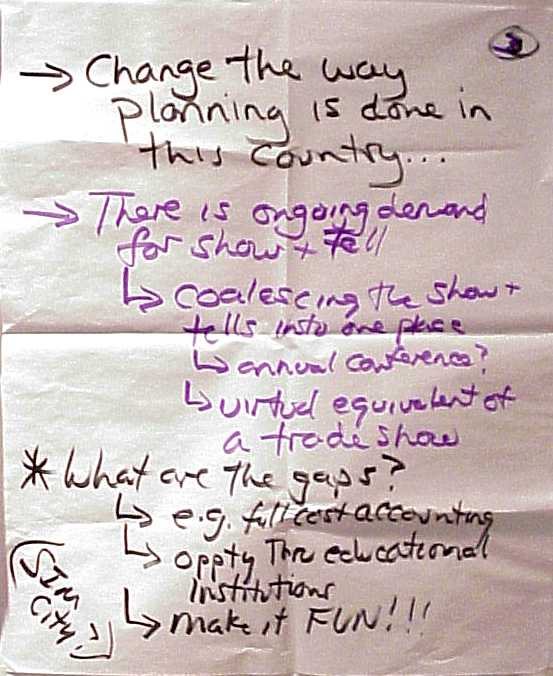 3
→ Change the way
planning is done in
this country...
→ There is ongoing demand
for show + tell
↳ coalescing the show +
tells into one place
↳ annual conference?
↳ virtual equivalent of
a trade show
* What are the gaps?
↳ e.g. full cost accounting
↳ oppty Thru educational
Institutions
↳ make it FUN!!!
(SIM
CITY?)